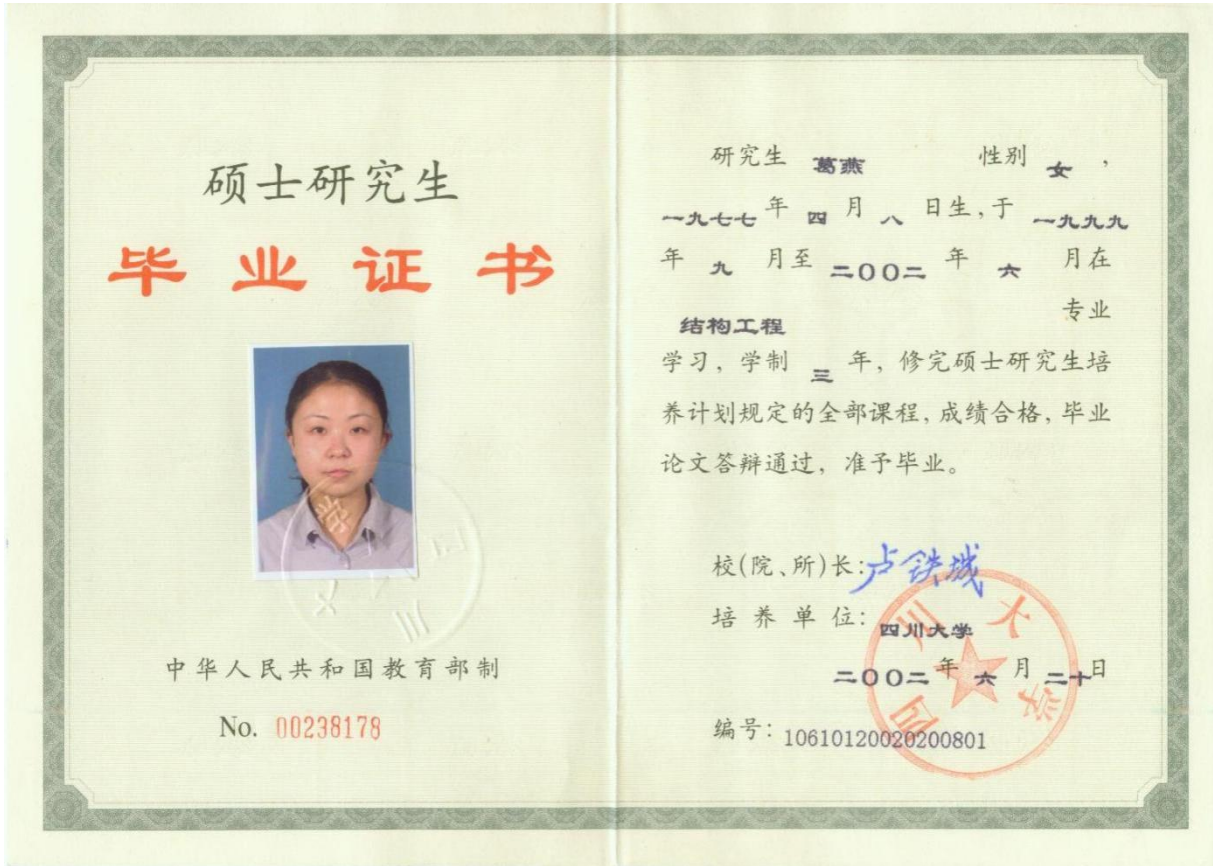 硕士研究生
毕业证书
中华人民共和国教育部制
No. 00238178
研究生 葛燕 性别 女，
一九七七年 四 月 八 日生,于 一九九九
年 九 月至 二００二 年 六 月在
结构工程 专业
学习，学制 三 年，修完硕士研究生培
养计划规定的全部课程,成绩合格,毕业
论文答辩通过，准予毕业。
校(院、所)长:卢铁城
培养单位: 四川大学
二００二年 六 月 二十日
编号: 10610120020200801
四川大学